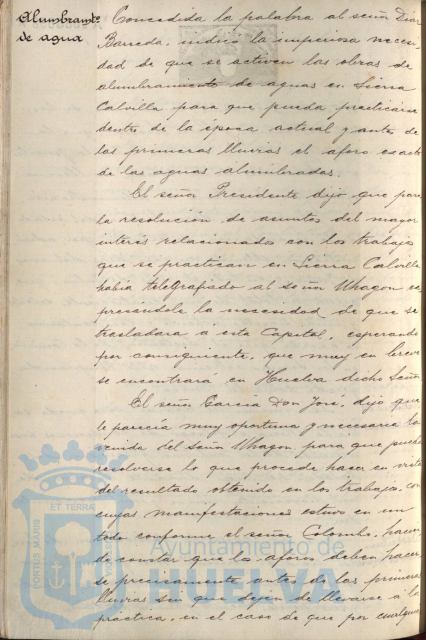 Alumbramto
de agua
Concedida la palabra al señor Diaz
Barreda, indicó la imperiosa necesi
dad de que se activen las obras de
alumbramiento de aguas en Sierra
Calvilla para que pueda practicarse
dentro de la época actual y antes de
las primeras lluvias el aforo exacto
de las aguas alumbradas.
El señor Presidente dijo que para
la resolución de asuntos del mayor
interés relacionados con los trabajos
que se practican en Sierra Calvilla
había telegrafiado al señor Whagon ex
presándole la necesidad de que se
trasladara á esta Capital, esperando
por consiguiente, que muy en breve
se encontrará en Huelva dicho Señor
El señor Garcia Don José, dijo que
le parecía muy oportuna y necesaria la
venida del señor Whagon para que pueda
resolverse lo que procede hacer en vista
del resultado obtenido en los trabajos, con
cuyas manifestaciones estuvo en un
todo conforme el señor Colombo, hacien
do constar que los aforos deben hacer
se precisamente antes de las primeras
lluvias sin que dejen de llevarse á la
práctica, en el caso de que por cualquier
PORTUS MARIS ET TERRAE
Ayuntamiento de
HUELVA